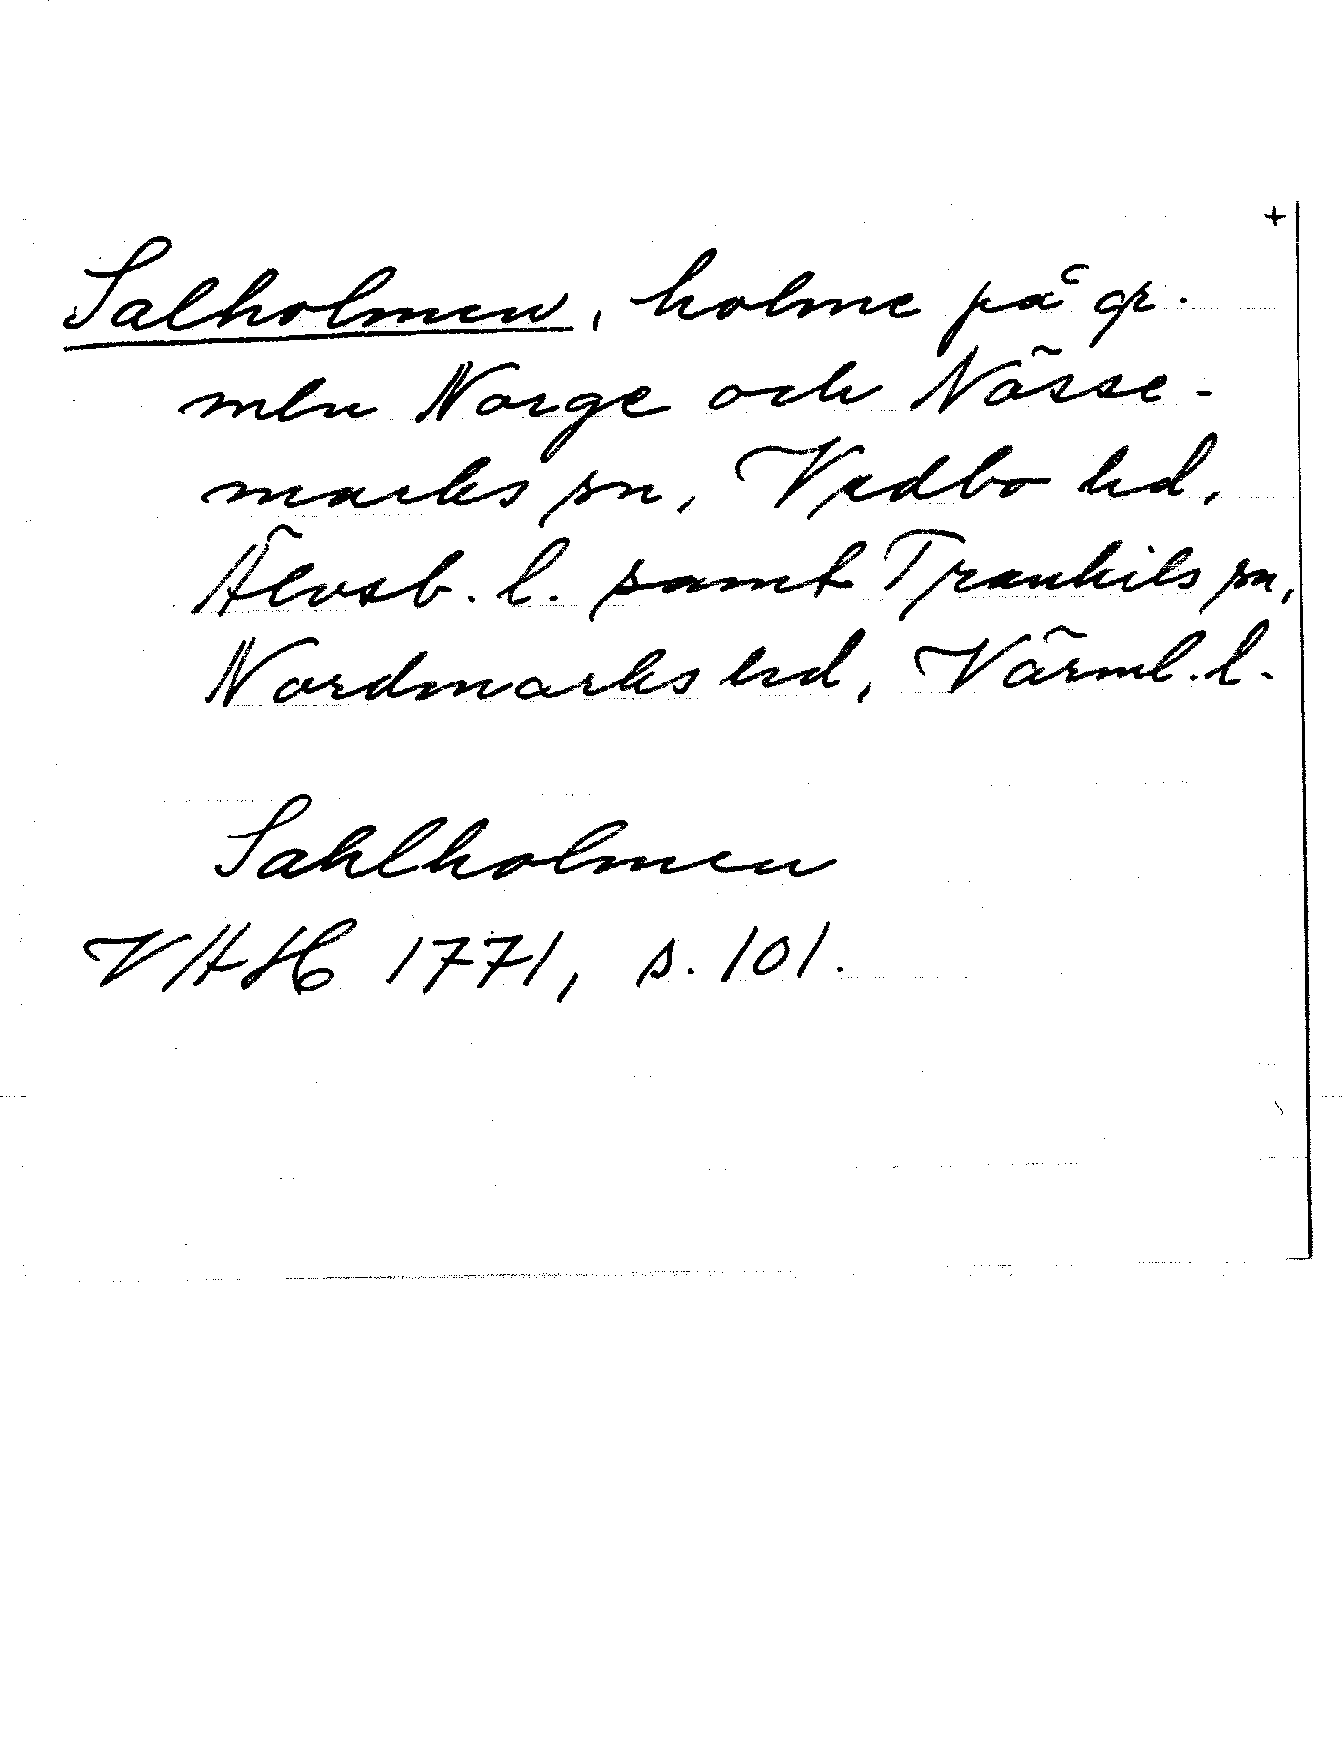 +
Salholmen, holme på gr.
mln Norge och Nässe-
marks sn, Vedbo hd,
Älvsb. l. samt Trankils sn,
Nordmarks hd, Värml. l.
Sahlholmen
VHH 1771, s. 101.